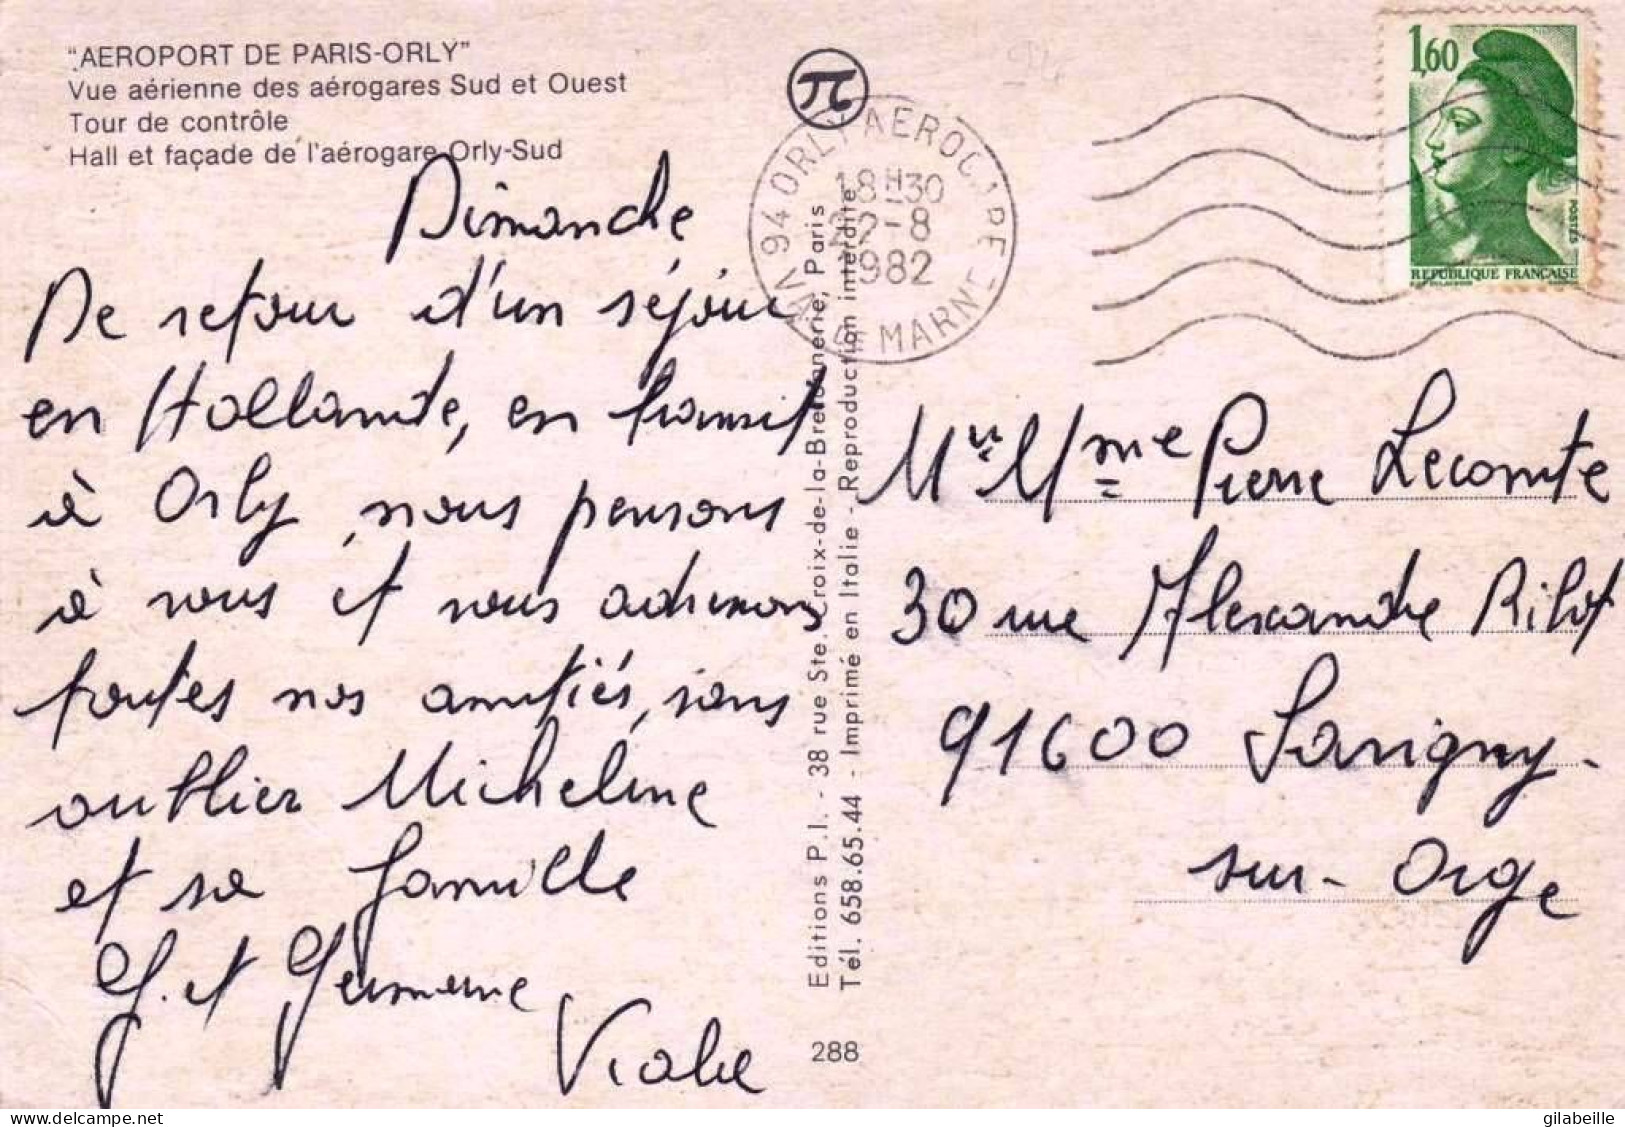 "AEROPORT DE PARIS-ORLY"
Vue aérienne des aérogares Sud et Ouest
Tour de contrôle
Hall et façade de l'aérogare Orly-Sud
Dimanche
De retour d'un séjour
en Hollande, en transit
à Orly, nous pensons
à vous et vous adressons
toutes nos amitiés, sans
oublier Micheline
et sa famille
G. et Germaine
94 ORLY AEROGARE
18H30
22-8
1982
VAL DE MARNE
1,60
POSTES
REPUBLIQUE FRANÇAISE
Editions P.I. - 38 rue Ste. Croix-de-la-Bretonnerie, Paris
Tél. 658.65.44 - Imprimé en Italie - Reproduction interdite
288
Mr Mme Pierre Lecomte
30 rue Alexandre Ribot
91600 Savigny-
sur-Orge
gilabeille